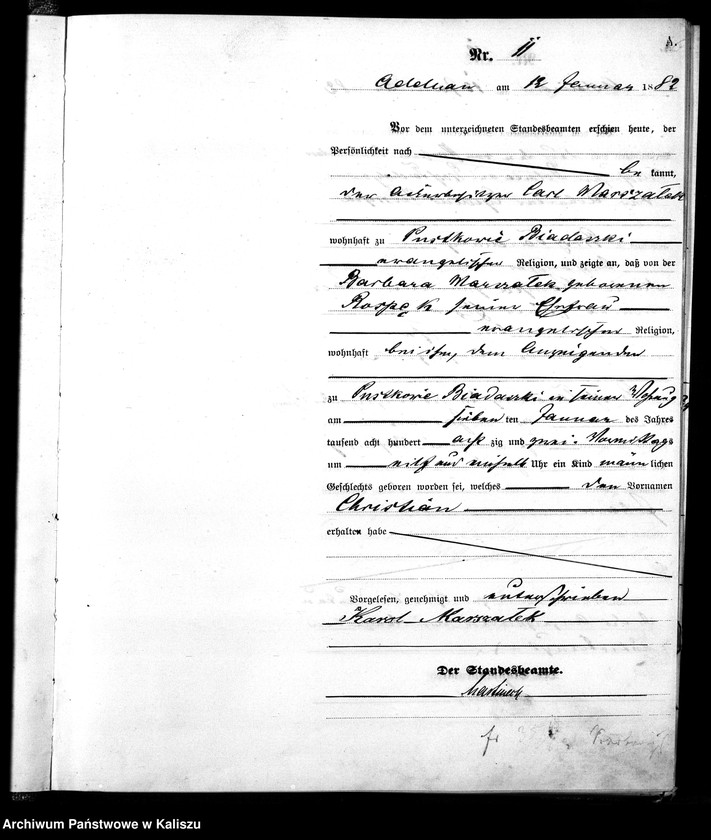 A.
Nr. 11
am 12 Januar 1882
Vor dem unterzeichneten Standesbeamten erschien heute, der
Persönlichkeit nach
be kannt,
der Ackerbesitzer Carl Marszalek
wohnhaft zu Pustkowie Biadaszki
evangelischer Religion, und zeigte an, daß von der
Barbara Marszałek geborenen
Rospęk seiner Ehefrau
evangelischer Religion,
wohnhaft bei ihm, dem Anzeigenden
zu Pustkowie Biadaszki in seiner Wohnung
am sieben ten Januar des Jahres
tausend acht hundert acht zig und zwei Vormittags
um eilf und einhalb Uhr ein Kind männ lichen
Geschlechts geboren worden sei, welches den Vornamen
Christian
erhalten habe
Vorgelesen, genehmigt und unterschrieben
Karol Marszałek
Der Standesbeamte.
Archiwum Państwowe w Kaliszu